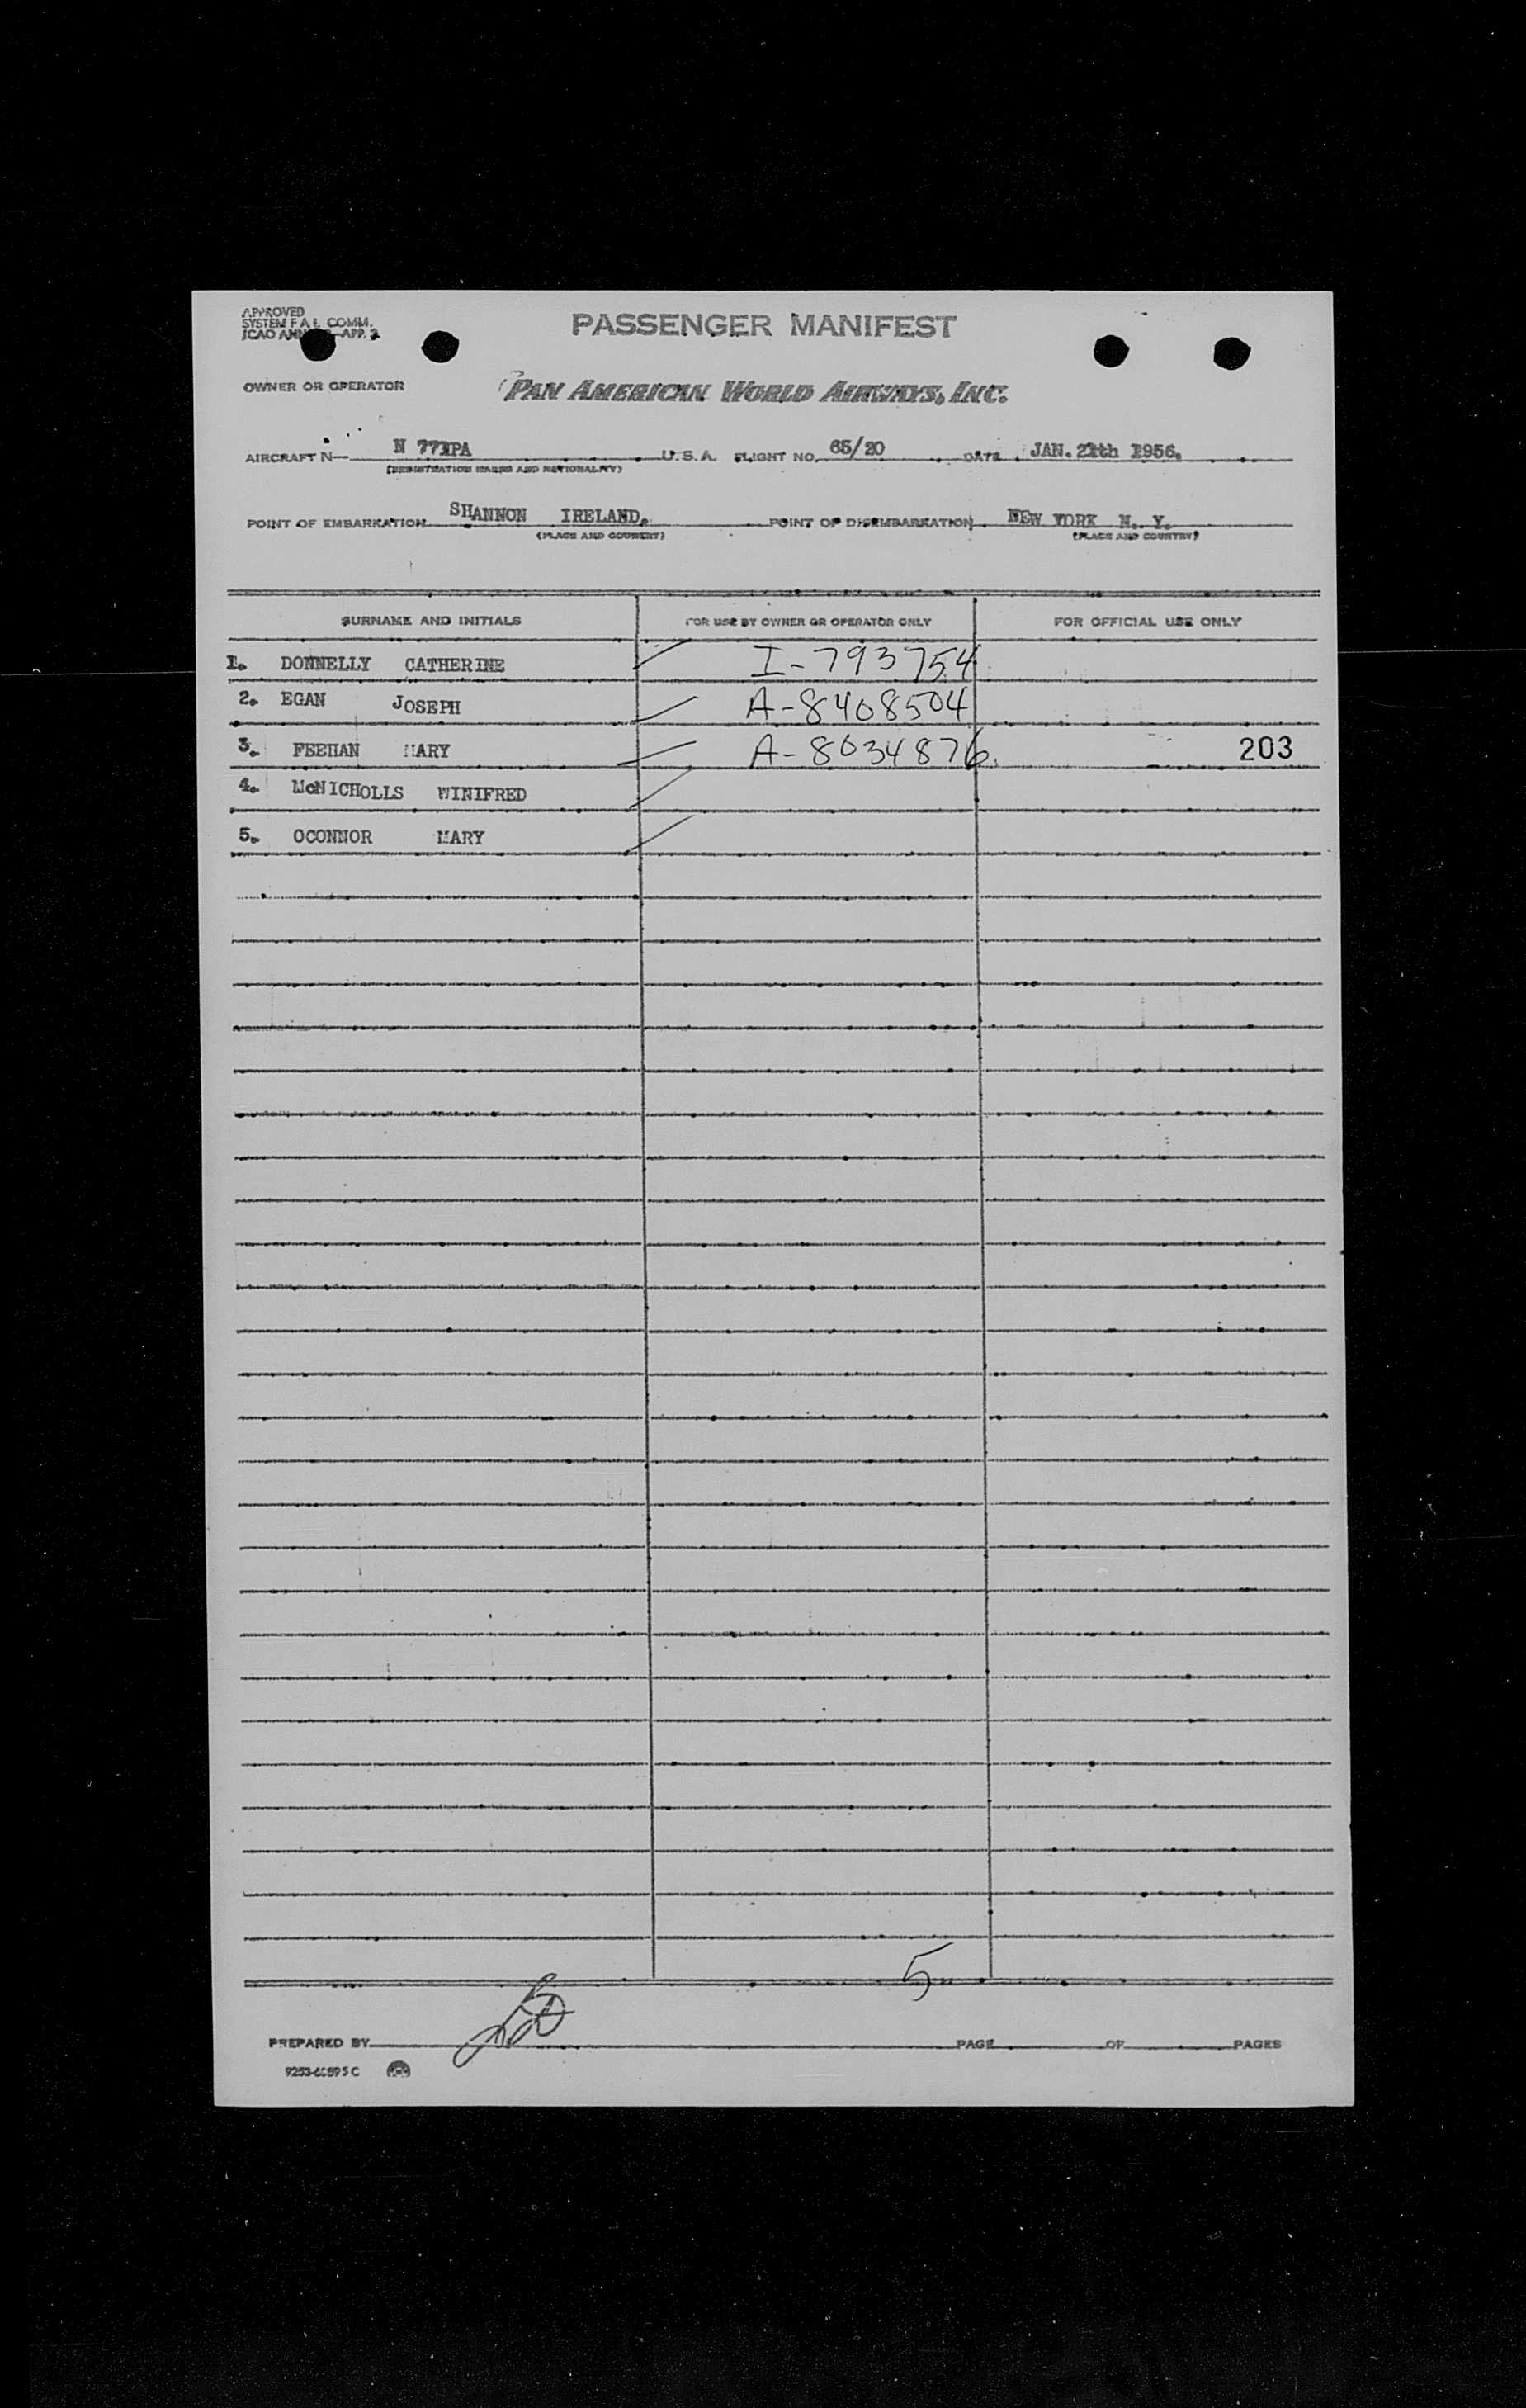 APPROVED
SYSTEM F A L COMM.
ICAO APP. 2
PASSENGER MANIFEST
OWNER OR OPERATOR PAN AMERICAN WORLD AIRWAYS, INC.
AIRCRAFT N— N U.S.A. FLIGHT NO. 65/20 DATE JAN. 1956.
(REGISTRATION MARKS AND NATIONALITY)
POINT OF EMBARKATION SHANNON IRELAND. POINT OF DISEMBARKATION NEW YORK N. Y.
(PLACE AND COUNTRY) (PLACE AND COUNTRY)
SURNAME AND INITIALS FOR USE BY OWNER OR OPERATOR ONLY FOR OFFICIAL USE ONLY
1. DONNELLY CATHERINE I-793754
2. EGAN JOSEPH A-8408504
3. FEEHAN MARY A-8034876 203
4. McNICHOLLS WINIFRED
5. OCONNOR MARY
5
PREPARED BY PAGE OF PAGES